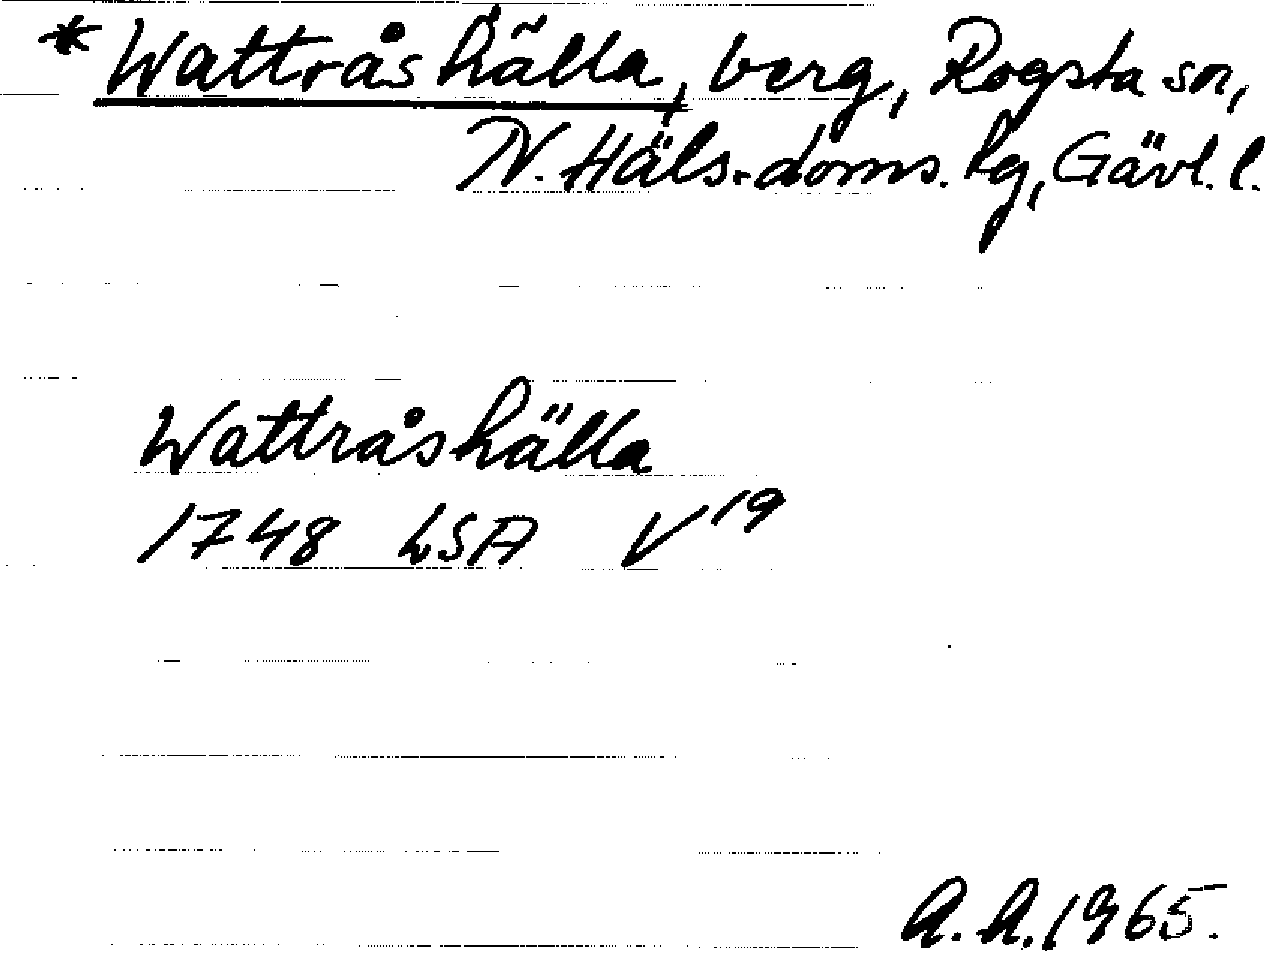 * Wattråshälla, berg, Rogsta sn,
N. Häls. doms. lg, Gävl. l.
Wattråshälla
1748 LSA V 19
A. A. 1965.